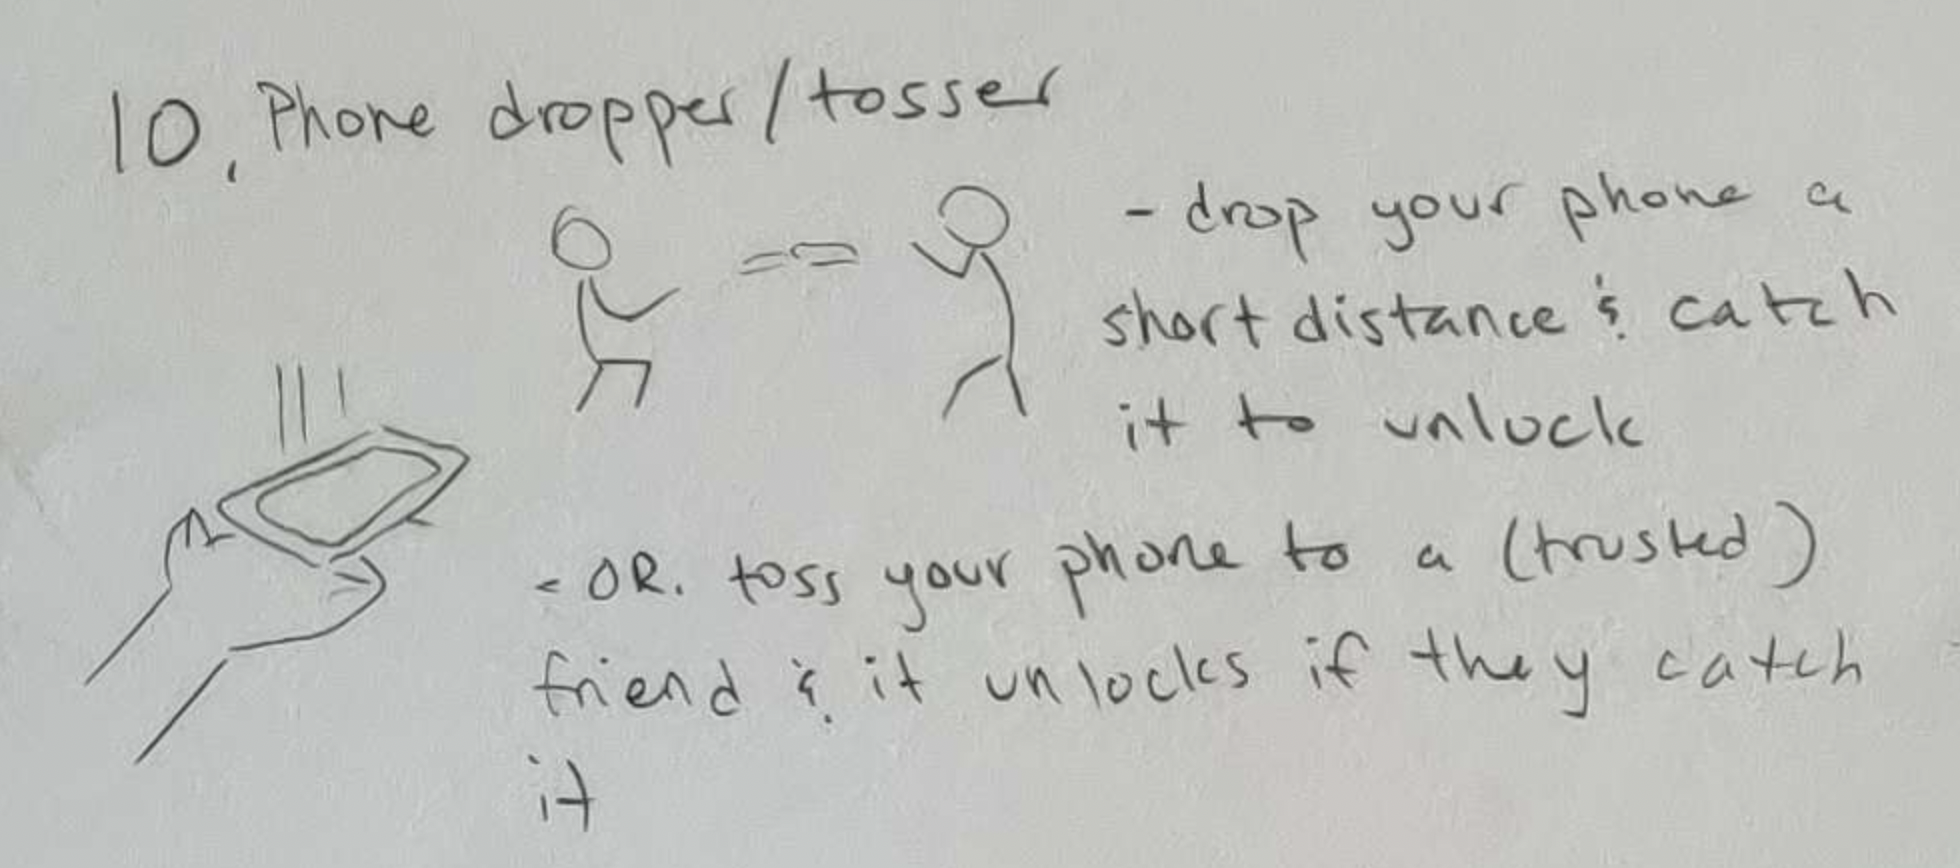 10. Phone dropper/tosser
- drop your phone a
short distance & catch
it to unlock
- OR. toss your phone to a (trusted)
friend & it unlocks if they catch
it